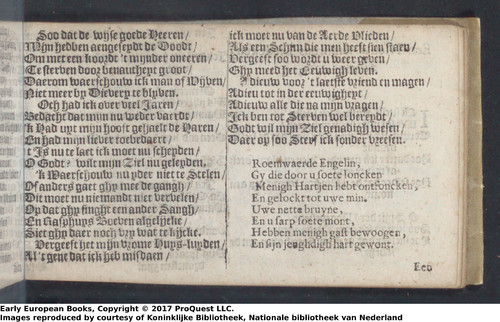 Soo dat de wijse goede Heeren/
Mijn hebben aengeseydt de Doodt/
Om met een koordt 't mynder oneeren/
Te sterven door benautheyt groot/
Daerom waerschouw ick man of Wijven/
Niet meer by Dievery te blyven.
Och had ick over veel Jaren/
Bedacht dat mijn nu weder vaerdt/
'k Had uyt mijn hooft gehaelt de Haren/
En had mijn liever
't Is nu te laet ick moet nu scheyden/
O Godt wilt mijn Ziel nu geleyden.
'k Waerschouw nu yder niet te Stelen/
Of anders gaet ghy mee de gangh/
Dit moet nu niemandt niet vervelen/
Op dat ghy singht een ander Sangh/
En Rasphuys Boeven algelijcke/
Siet ghy daer noch vry wat te kijcke.
Vergeeft het mijn vrome Huys-luyden/
Al 't gene dat ick heb misdaen/
ick moet nu van de Aerde Vlieden/
Als een Schim die men heeft sien staen/
Vergeeft soo wordt u weer geven/
Ghy meed het Eeuwigh leven.
Adieu voor 't laetste vriend en magen/
Adieu tot in der eeuwigheyt/
Adieuw alle die na mijn vragen/
Ick ben tot Sterven wel bereydt/
Godt wil mijn Ziel genadigh wesen/
Daer op soo Sterf ick sonder vreesen.
Roemwaerde Engelin,
Gy die door u soete loncken
Menigh Hartjen hebt ontfoncken,
En gelockt tot uwe min.
Uwe nette bruyne,
En u sarp soete mont,
Hebben menigh gast bewoogen,
En sijn jeughdigh hart gewont.
Een
Early European Books, Copyright © 2017 ProQuest LLC.
Images reproduced by courtesy of Koninklijke Bibliotheek, Nationale bibliotheek van Nederland